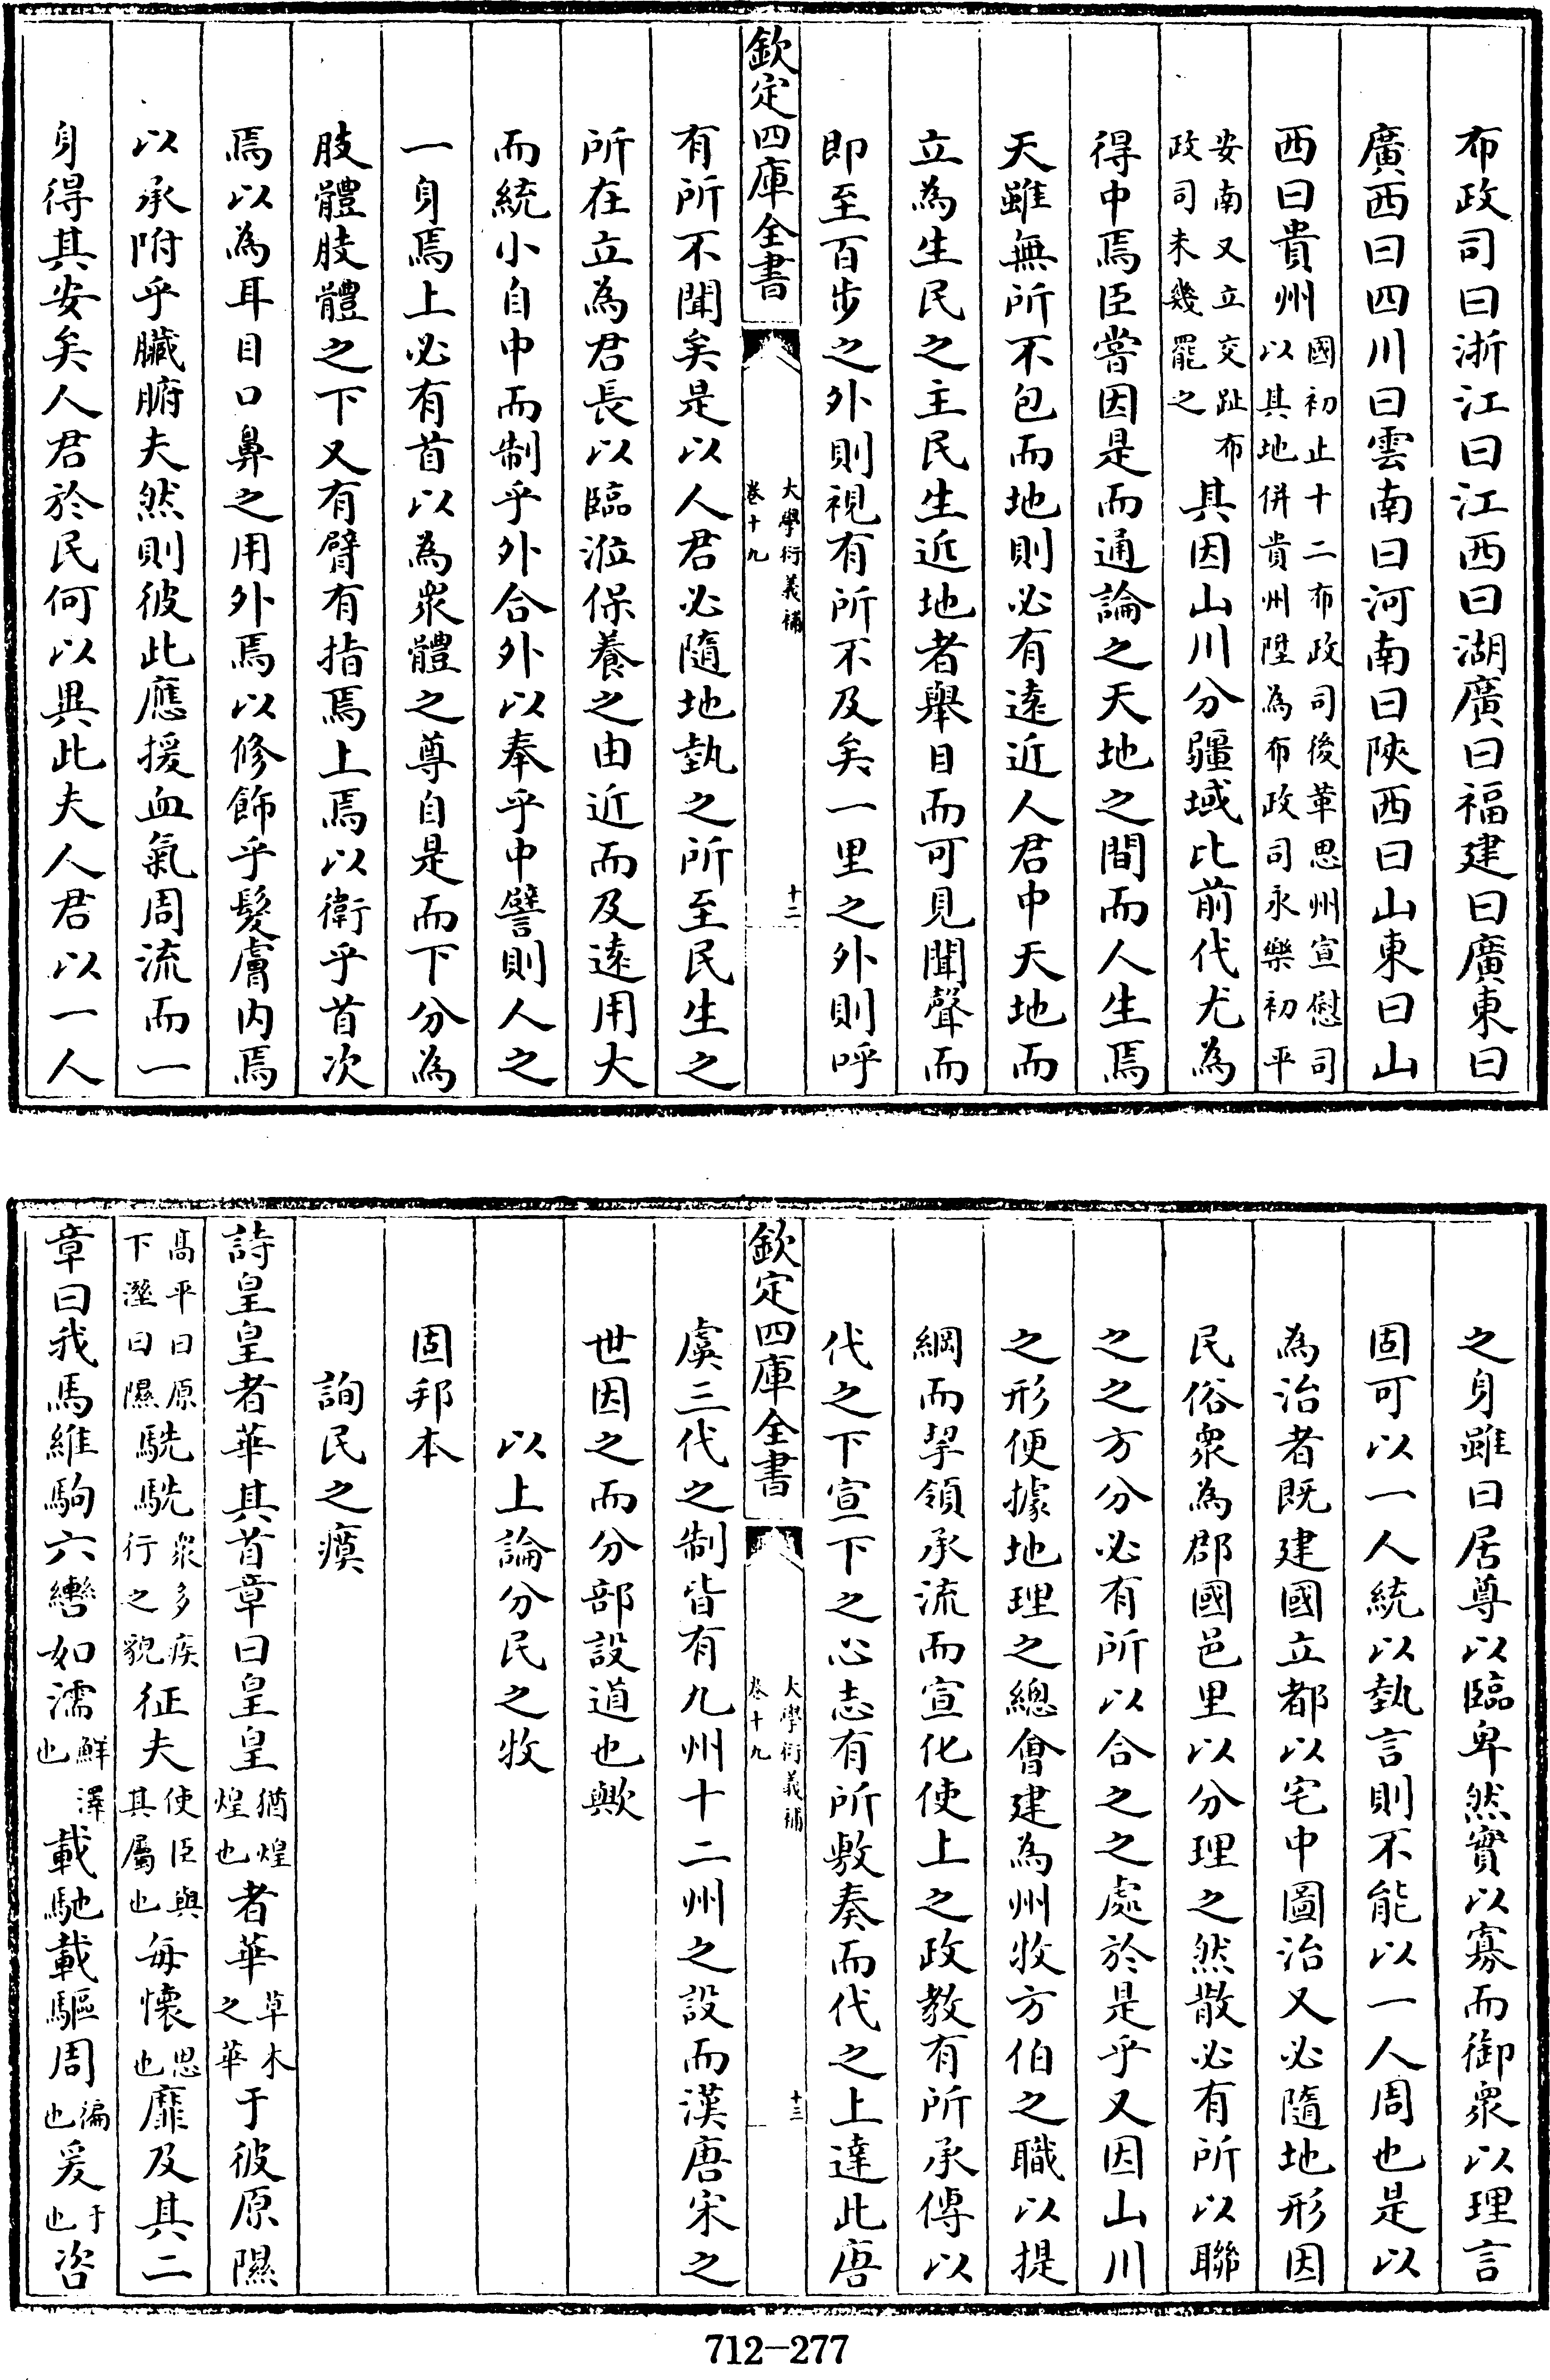 布政司曰浙江曰江西曰湖廣曰福建曰廣東曰
廣西曰四川曰雲南曰河南曰陜西曰山東曰山
西曰貴州國初止十二布政司後革思州宣慰司以其地併貴州陞為布政司永樂初平
安南又立交趾布政司未幾罷之其因山川分疆域比前代尤為
得中焉臣嘗因是而通論之天地之間而人生焉
天雖無所不包而地則必有遠近人君中天地而
立為生民之主民生近地者舉目而可見聞聲而
即至百步之外則視有所不及矣一里之外則呼
欽定四庫全書
大學衍義補
卷十九
十二
有所不聞矣是以人君必隨地埶之所至民生之
所在立為君長以臨涖保養之由近而及遠用大
而統小自中而制乎外合外以奉乎中譬則人之
一身焉上必有首以為衆體之尊自是而下分為
肢體肢體之下又有臂有指焉上焉以衛乎首次
焉以為耳目口鼻之用外焉以修飾乎髮膚内焉
以承附乎臟腑夫然則彼此應援血氣周流而一
身得其安矣人君於民何以異此夫人君以一人
之身雖曰居尊以臨卑然實以寡而御衆以理言
固可以一人統以埶言則不能以一人周也是以
為治者既建國立都以宅中圖治又必隨地形因
民俗衆為郡國邑里以分理之然散必有所以聯
之之方分必有所以合之之處於是乎又因山川
之形便據地理之總會建為州牧方伯之職以提
綱而挈領承流而宣化使上之政教有所承傳以
代之下宣下之心志有所敷奏而代之上達此唐
欽定四庫全書
大學衍義補
卷十九
十三
虞三代之制皆有九州十二州之設而漢唐宋之
世因之而分部設道也歟
以上論分民之牧
固邦本
詢民之瘼
詩皇皇者華其首章曰皇皇猶煌煌也者華草木之華于彼原隰
高平曰原下溼曰隰駪駪衆多疾行之貌征夫使臣與其屬也每懷思也靡及其二
章曰我馬維駒六轡如濡鮮澤也載馳載驅周徧也爰于也咨
712-277